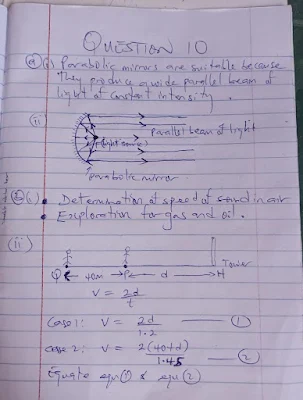 QUESTION 10
a (i) Parabolic mirrors are suitable because
they produce a wide parallel beam of
light of constant intensity.
(ii)
Parallel beam of light
(light source)
Parabolic mirror
(i) • Determination of speed of sound in air
• Exploration for gas and oil.
(ii)
Tower
Q 40m P d H
V = 2d
t
Case 1: V = 2d ——— ①
1.2
Case 2: V = 2(40+d) ——— ②
1.45
Equate eqn ① & eqn ②